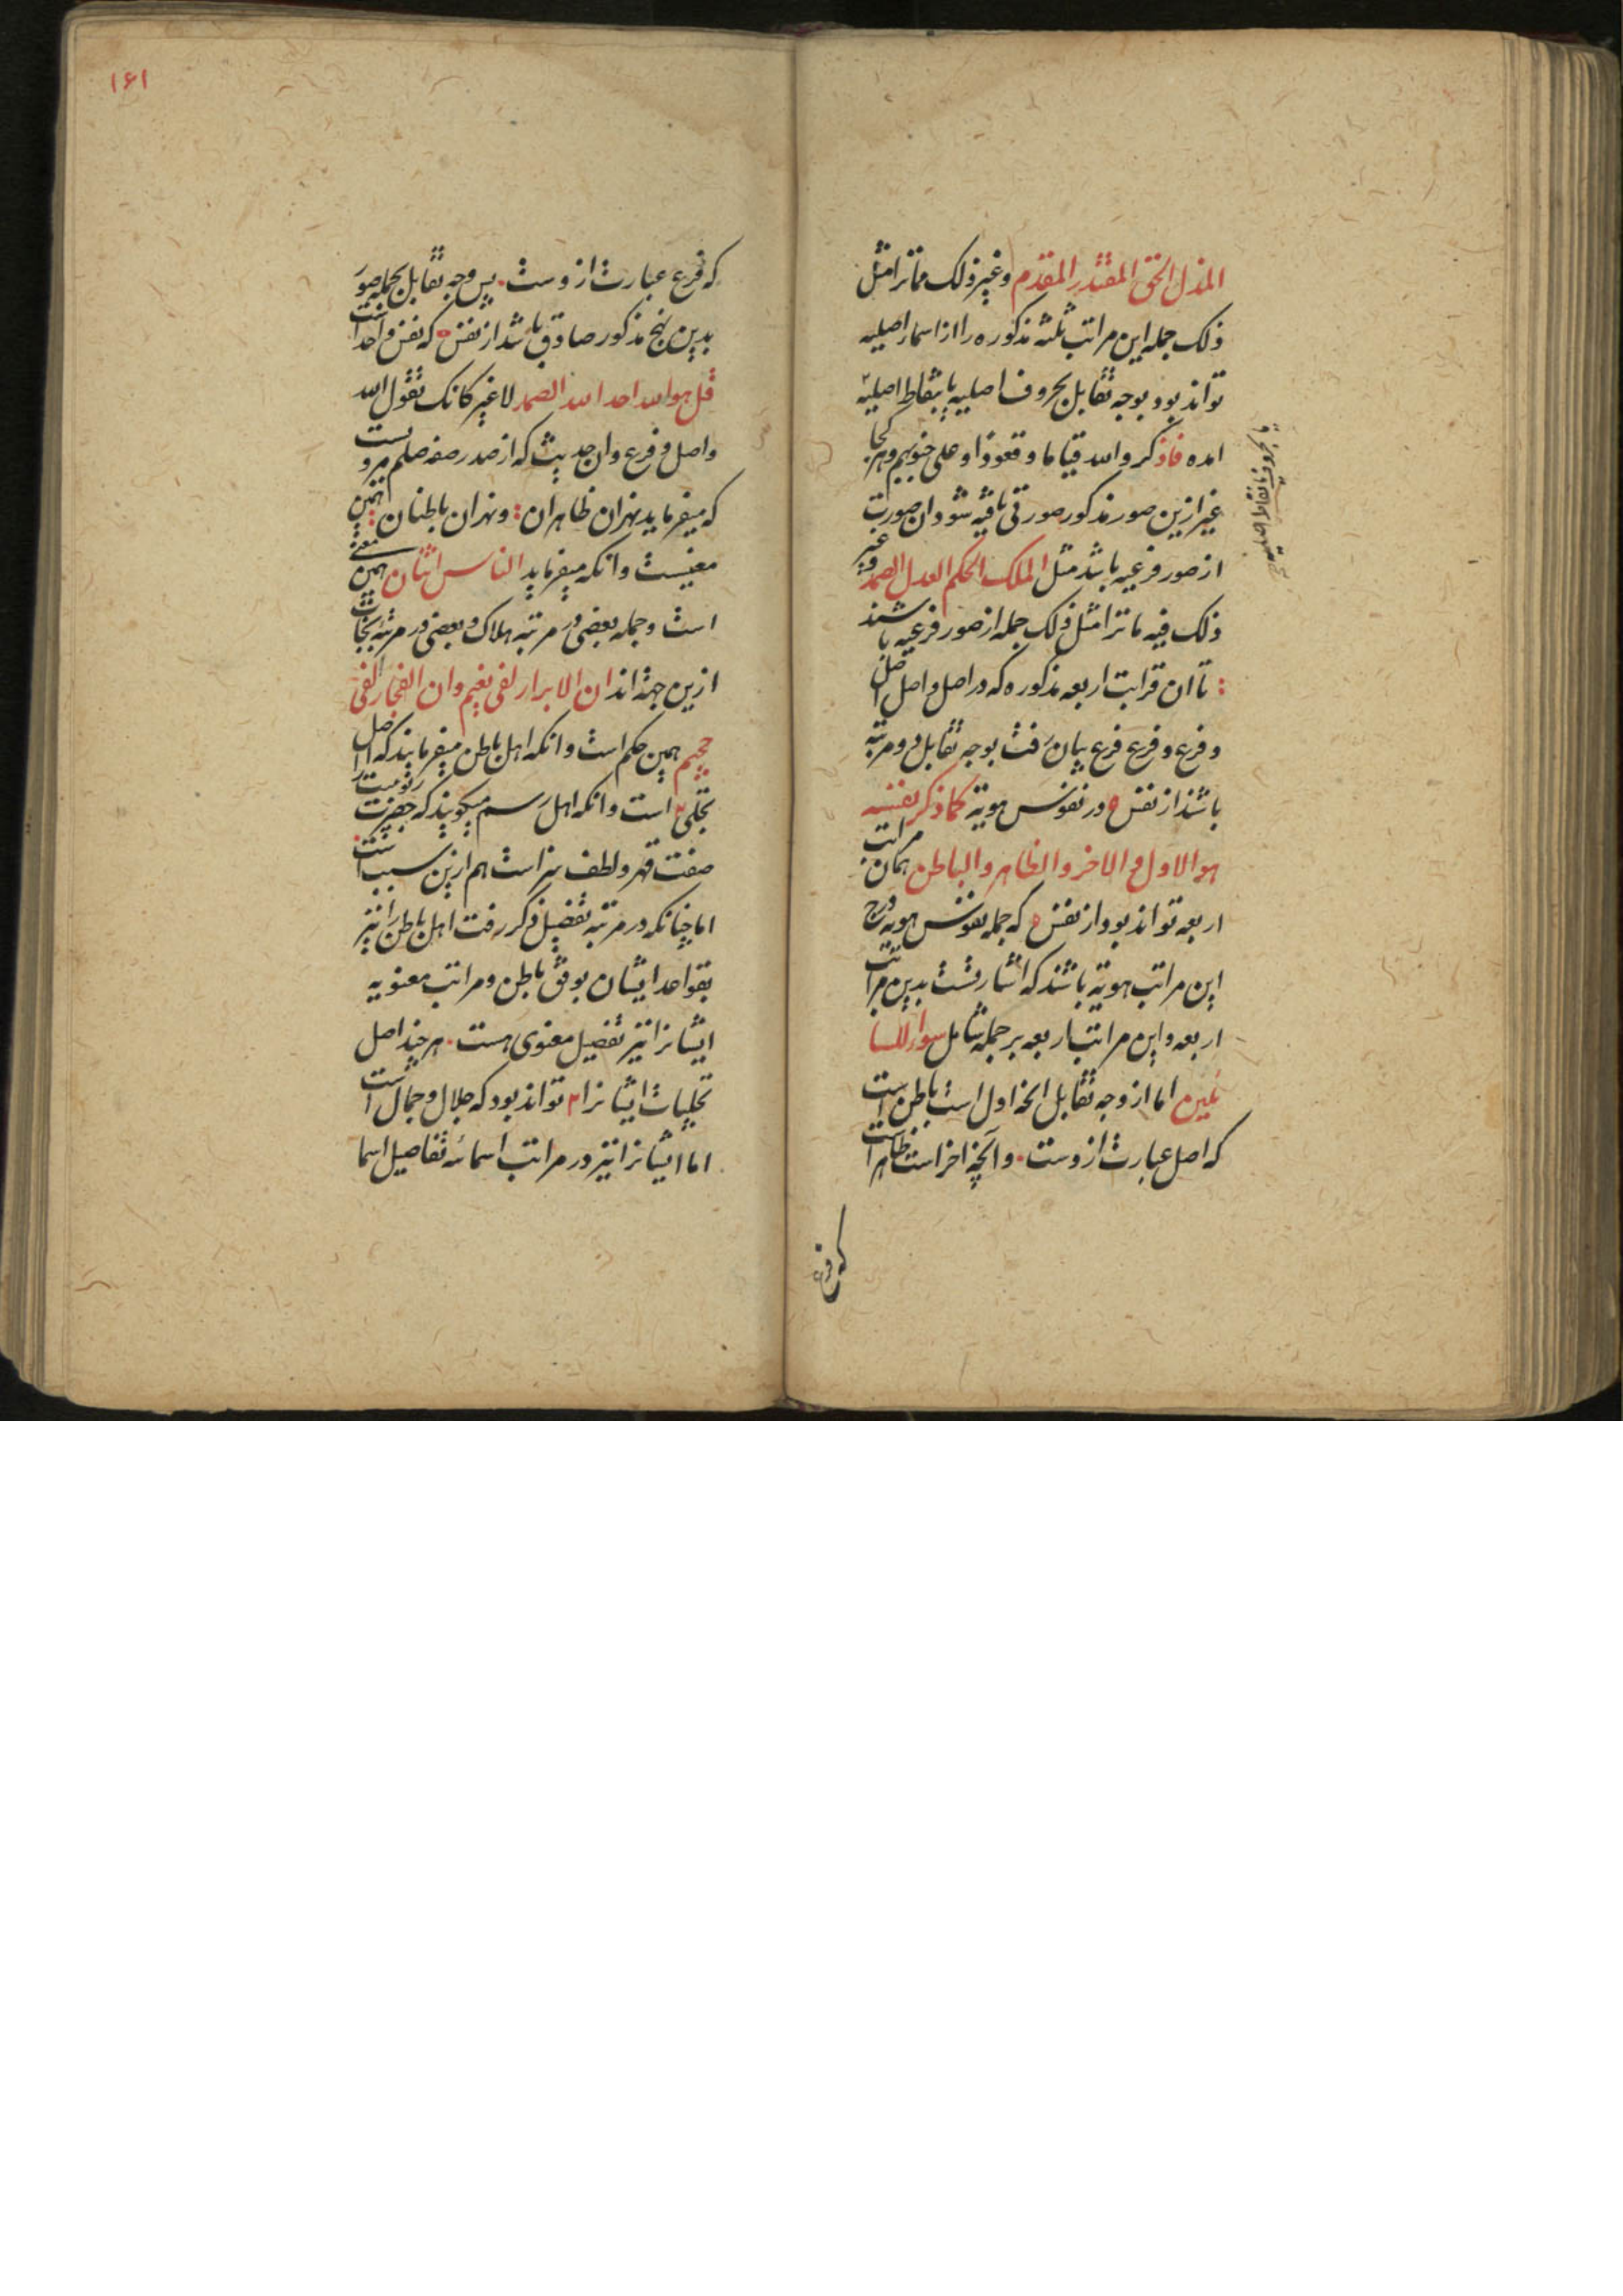 المذل الحق المقتدر المقدم وغیر ذلک مما تزا مثل
ذلک جمله این مراتب ثلثه مذکوره را از اسماء اصلیه
تواند بود و بوجه تقابل بحروف اصلیه یا بنقاط اصلیه
امده فاذکروا الله قیاما وقعودا وعلی جنوبهم وهر کجا
غیر ازین صور مذکور صورتی یافته شود ان صورت
از صور فرعیه باشد مثل الملک الحکم العدل الصمد وغیر
ذلک فیه ما تزا مثل ذلک جمله از صور فرعیه باشند
تا ان قرابت اربعه مذکوره که در اصل و اصل اصل
و فرع و فرع فرع بیان رفت بوجه تقابل دو مرتبه
باشد از نقش ه در نقوش هویة کما ذکر نفسه
هو الاول والاخر والظاهر والباطن همان مراتب
اربعه تواند بود از نقش ه که جمله نقوش هویه درج
این مراتب هویة باشند که اشارتست بدین مراتب
اربعه و این مراتب اربعه بر جمله شامل سواء للسا
ئلین اما از وجه تقابل انچه اول است باطن است
که اصل عبارت ازوست . و آنچه اخر است ظاهر است
که فرع
۱۶۱
که فرع عبارت ازوست . پس وجه تقابل بجمله صور
بدین نهج مذکور صادق باشد از نقش ه که نفس واحد است
قل هو الله احد الله الصمد لا غیر کانک تقول الله
واصل و فرع وان حدیث که از صدر صفه صلم مرویست
که میفرماید نهران ظاهران : ونهران باطنان : همین
معنیست وانکه میفرماید الناس اثنان همین معنی
است و جمله بعضی در مرتبه هلاک و بعضی در مرتبه نجات
ازین جهة اند ان الابرار لفی نعیم وان الفجار لفی
جحیم همین حکم است وانکه اهل باطن میفرمایند که اصل
تجلی ۲ است وانکه اهل رسم میکویند که حضرت ربوبیت را
صفت قهر و لطف نیز است هم ازین سبب است .
اما چنانکه در مرتبه تفصیل ذکر رفت اهل باطن را نیز
بقواعد ایشان بوفق باطن و مراتب معنویه
ایشانرا نیز تفصیل معنوی هست . هر چند اصل
تجلیات ایشانرا ۲ تواند بود که جلال و جمال است
اما ایشانرا نیز در مراتب اسمائه تفاصیل اسما